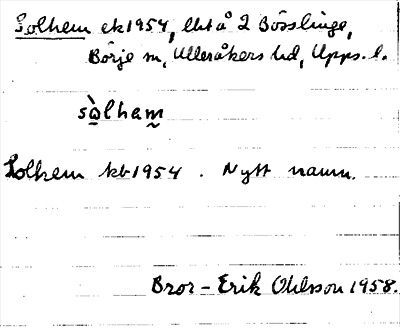 Solhem ek 1954, lht å 2 Bösslinge,
Börje sn, Ulleråkers hd, Upps. l.
sòlham
Solhem kb 1954. Nytt namn.
Bror-Erik Ohlsson 1958.